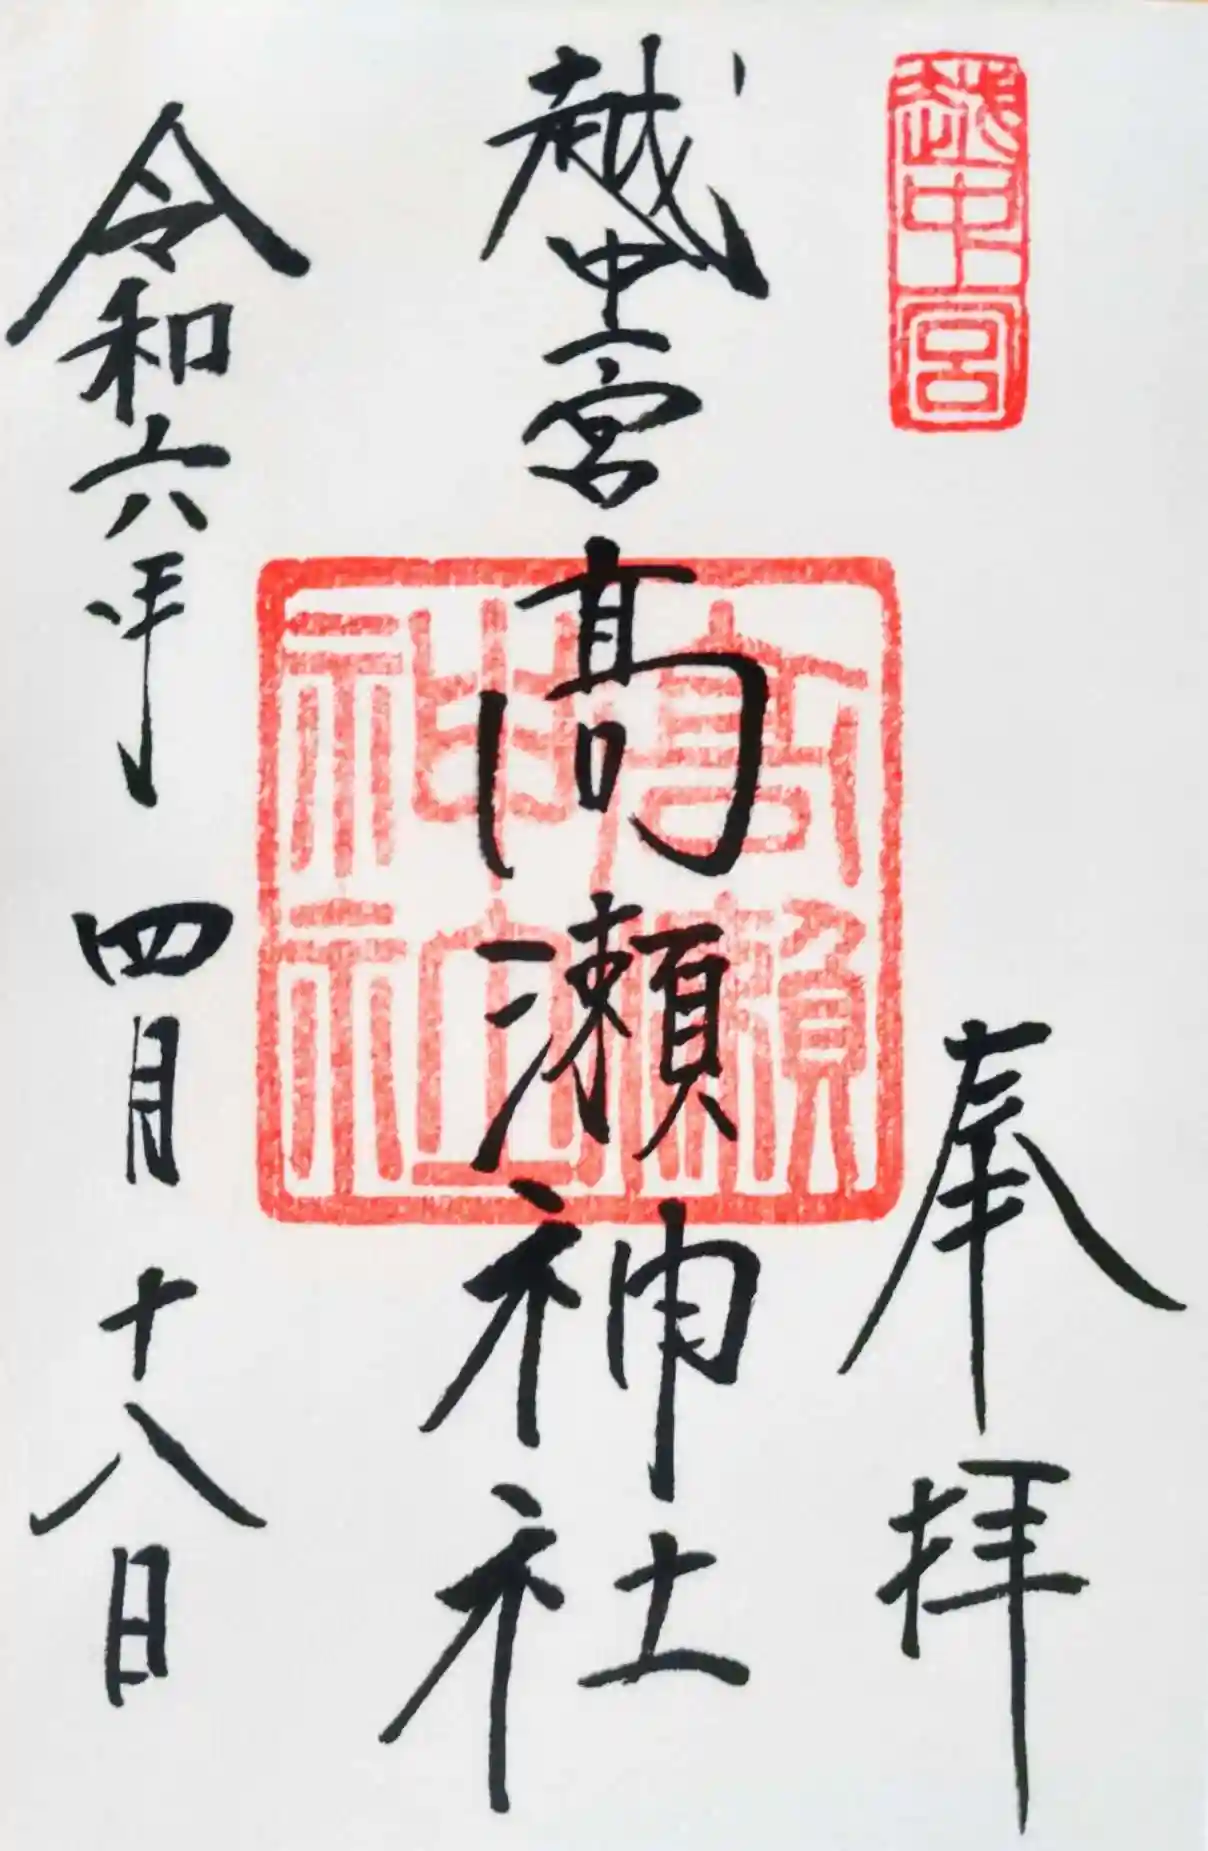 越中一宮
奉拝
越中一宮髙瀬神社
高瀬神社
令和六年 四月十八日